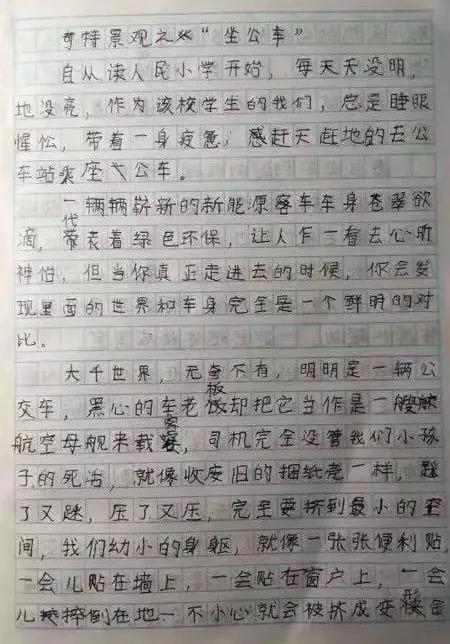 奇特景观之“坐公车”
自从读人民小学开始，每天天没明，
地没亮，作为该校学生的我们，总是睡眼
惺忪，带着一身疲惫，感赶天赶地的去公
车站乘座公车。
一辆辆崭新的新能原客车车身苍翠欲
滴，代表着绿色环保，让人乍一看去心旷
神怡，但当你真正走进去的时候，你会发
现里面的世界和车身完全是一个鲜明的对
比。
大千世界，无奇不有，明明是一辆公
交车，黑心的车老板却把它当作是一艘
航空母舰来载客，司机完全没管我们小孩
子的死活，就像收废旧的捆纸壳一样，踩
了又踩，压了又压，完全要挤到最小的空
间，我们幼小的身躯，就像一张张便利贴，
一会儿贴在墙上，一会贴在窗户上，一会
儿摔倒在地一不小心就会被挤成变形金